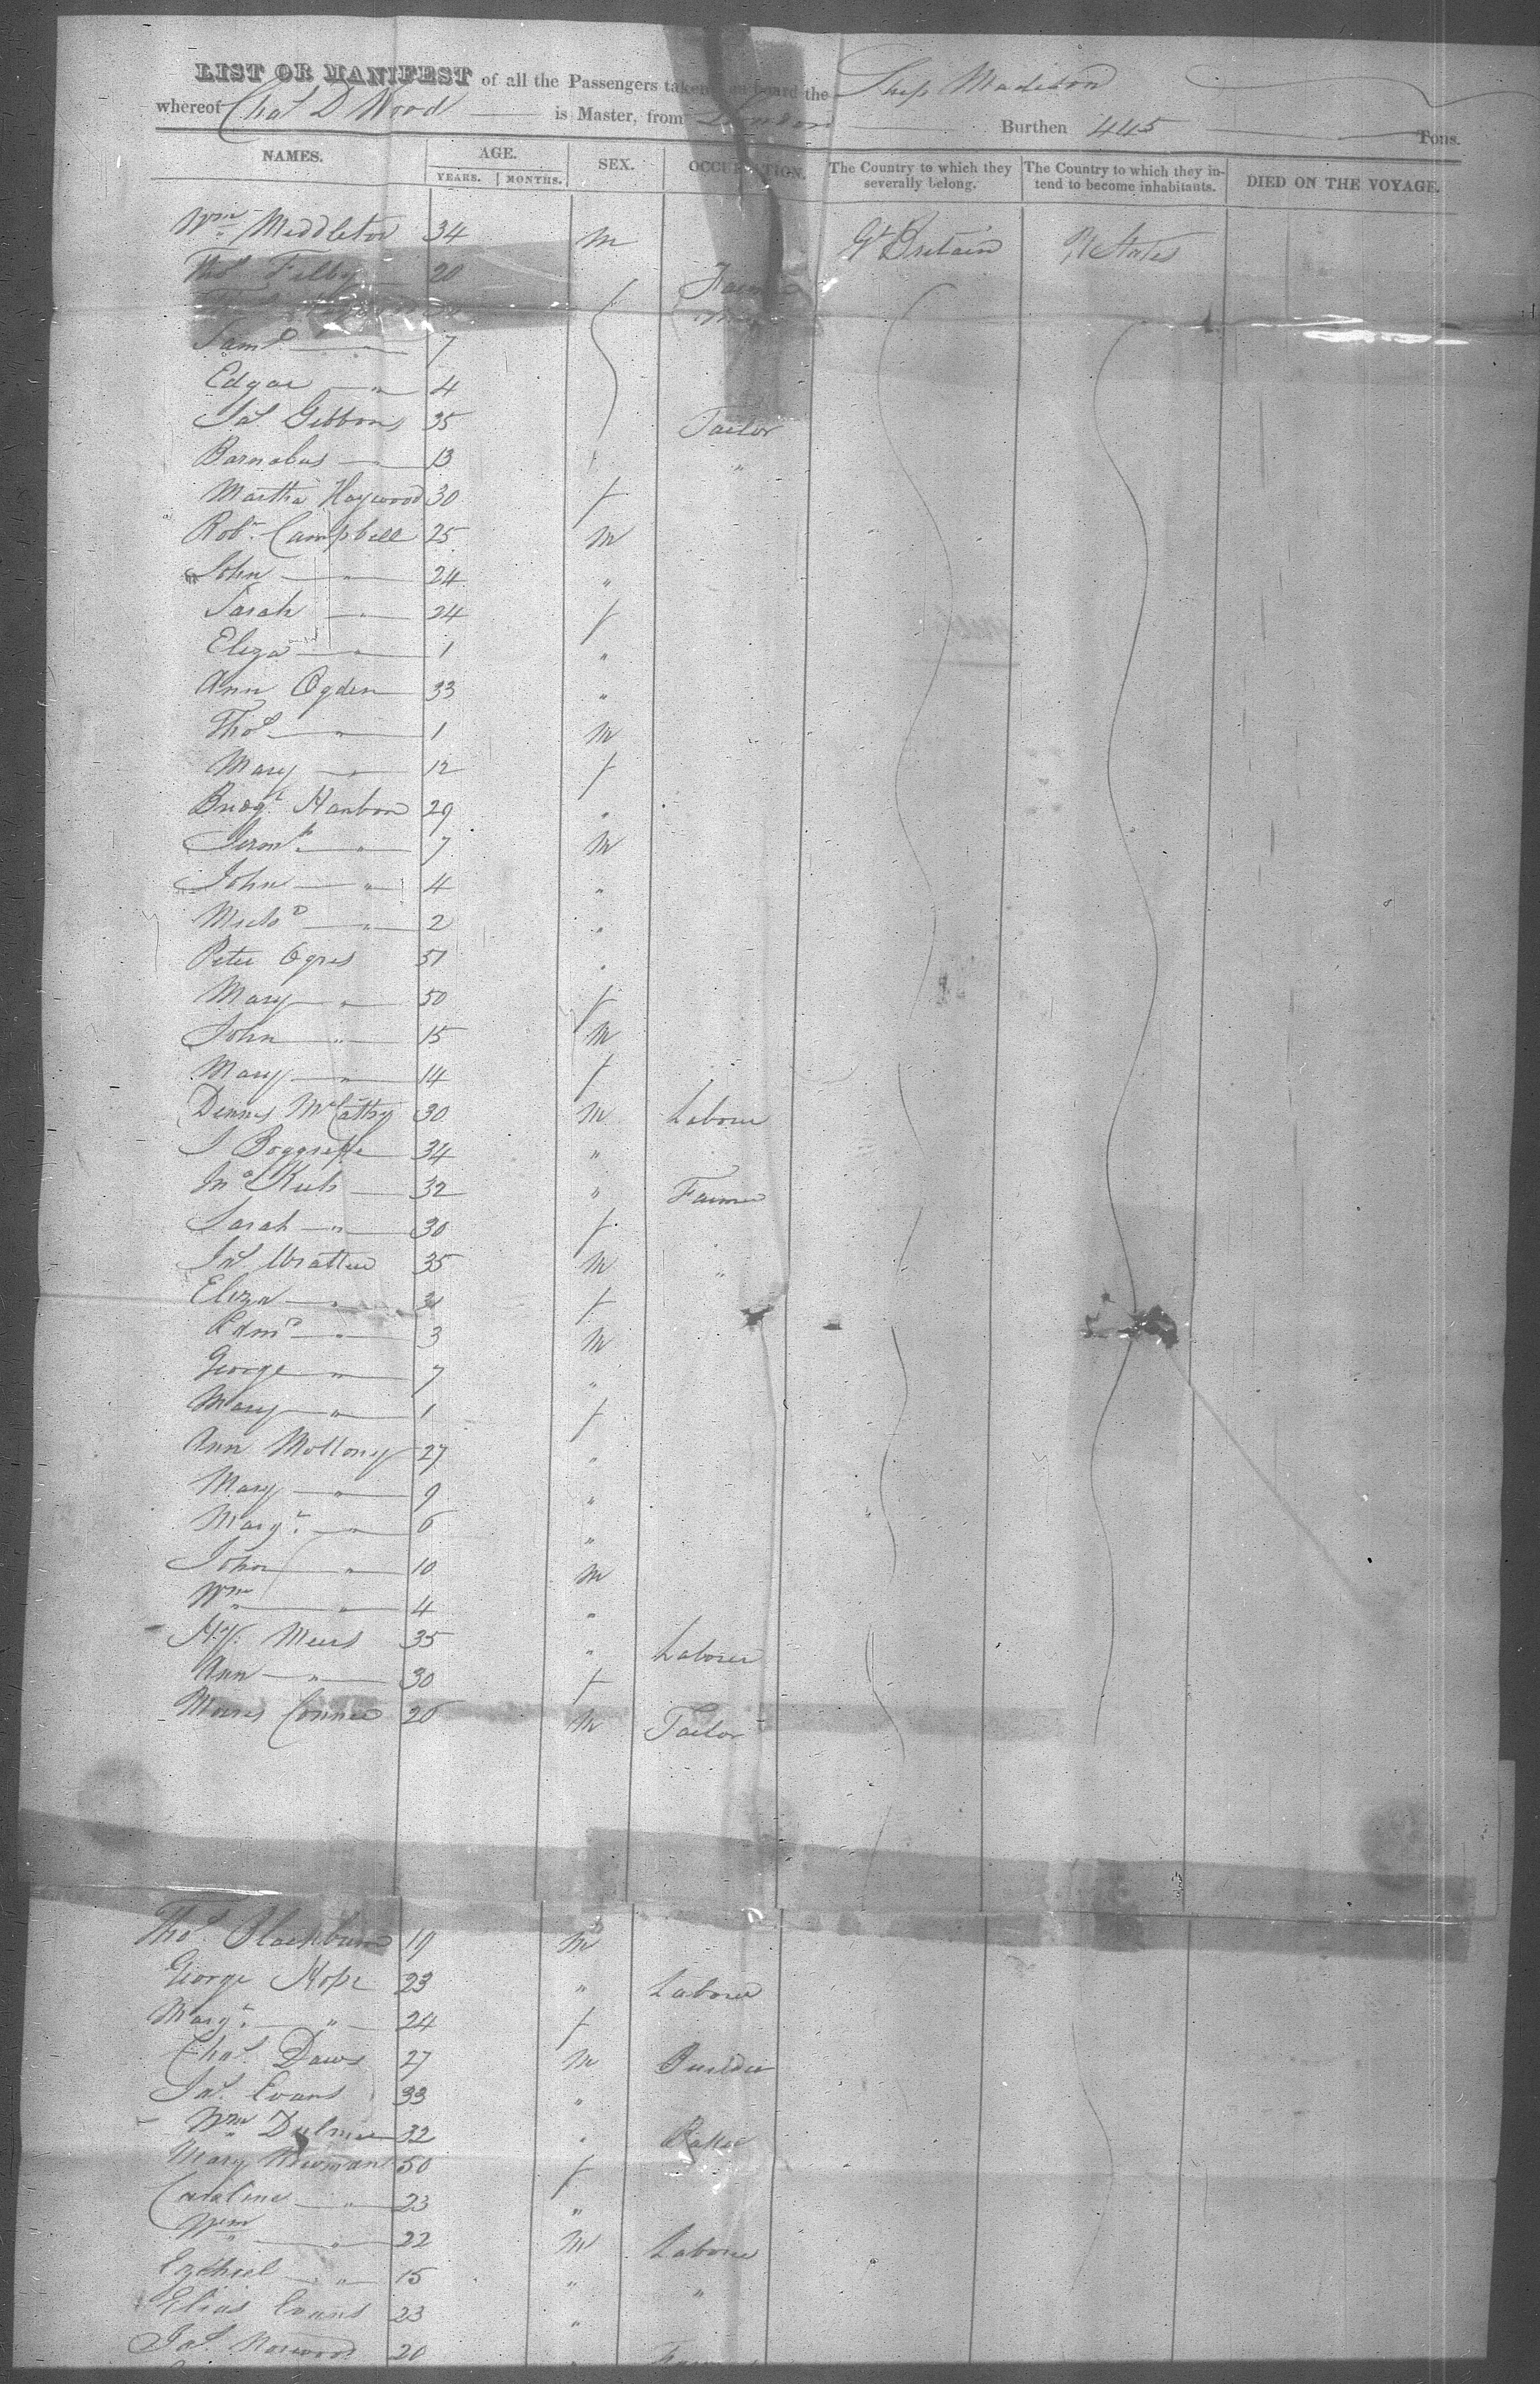 LIST OR MANIFEST of all the Passengers taken on board the Ship Madison
whereof Chas D Wood is Master, from London Burthen 445 Tons.
NAMES. AGE. SEX. OCCUPATION. The Country to which they severally belong. The Country to which they intend to become inhabitants. DIED ON THE VOYAGE.
YEARS. MONTHS.
Wm Middleton 34 M Gt Britain U States
Thos Filby 20 Farmer
Saml " 7
Edgar " 4
Jas Gibbons 35 Tailor
Barnabas " 13 "
Martha Haywood 30 f
Robt Campbell 25 M
John " 24 "
Sarah " 24 f
Eliza " 1 "
Ann Ogden 33 "
Thos " 1 M
Mary " 12 f
Bridgt Hanbon 29 "
Jerem " 7 M
John " 4 "
Michl " 2 "
Peter Ogres 51 "
Mary " 50 f
John " 15 M
Mary " 14 f
Dennis McCathy 30 M Laborer
J 34 "
Jno 32 " Farmer
Sarah " 30 f
Jas Wratten 35 M "
Eliza " f
Edmd " 3 M
George " 7 "
Mary " 1 f
Ann Mollony 27 "
Mary " 9 "
Margt " 6 "
John " 10 M
Wm " 4 "
Hy Meers 35 " Laborer
Ann " 30 f
Moses Conner 26 M Tailor
Thos Blackburn 19 M
George Hope 23 " Laborer
Margt " 24 f
Chas Daws 27 M Builder
Jas Evans 33 "
Wm Dulmer 32 " Baker
Mary Newman 50 f
Caroline " 23 "
Wm " 22 M Laborer
Ezekiel " 15 " "
Elias Evans 23 "
Jas Norwood 20